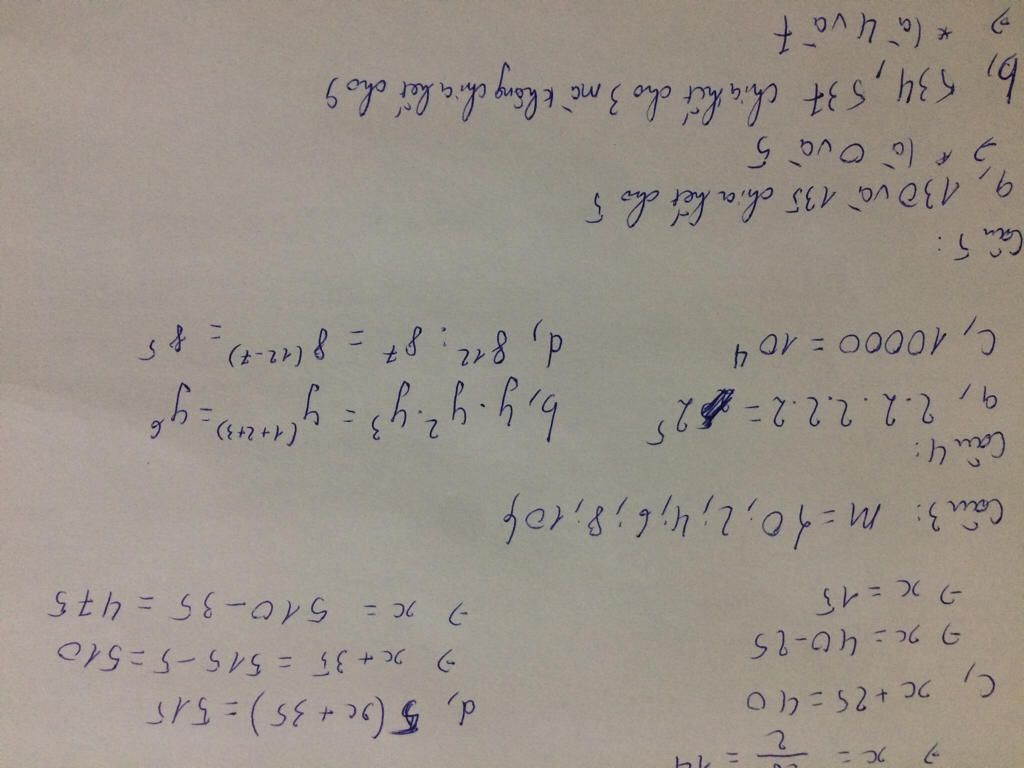 => x = 28/2 = 14
c, x + 25 = 40
=> x = 40 - 25
=> x = 15
d, 5(x + 35) = 515
=> x + 35 = 515 - 5 = 510
=> x = 510 - 35 = 475
Câu 3: M = {0; 2; 4; 6; 8; 10}
Câu 4:
a, 2.2.2.2.2 = 2⁵
b, y.y².y³ = y⁽¹⁺²⁺³⁾ = y⁶
c, 10000 = 10⁴
d, 8¹² : 8⁷ = 8⁽¹²⁻⁷⁾ = 8⁵
Câu 5:
a, 130 và 135 chia hết cho 5
=> * là 0 và 5
b, 534, 537 chia hết cho 3 mà không chia hết cho 9
=> * là 4 và 7